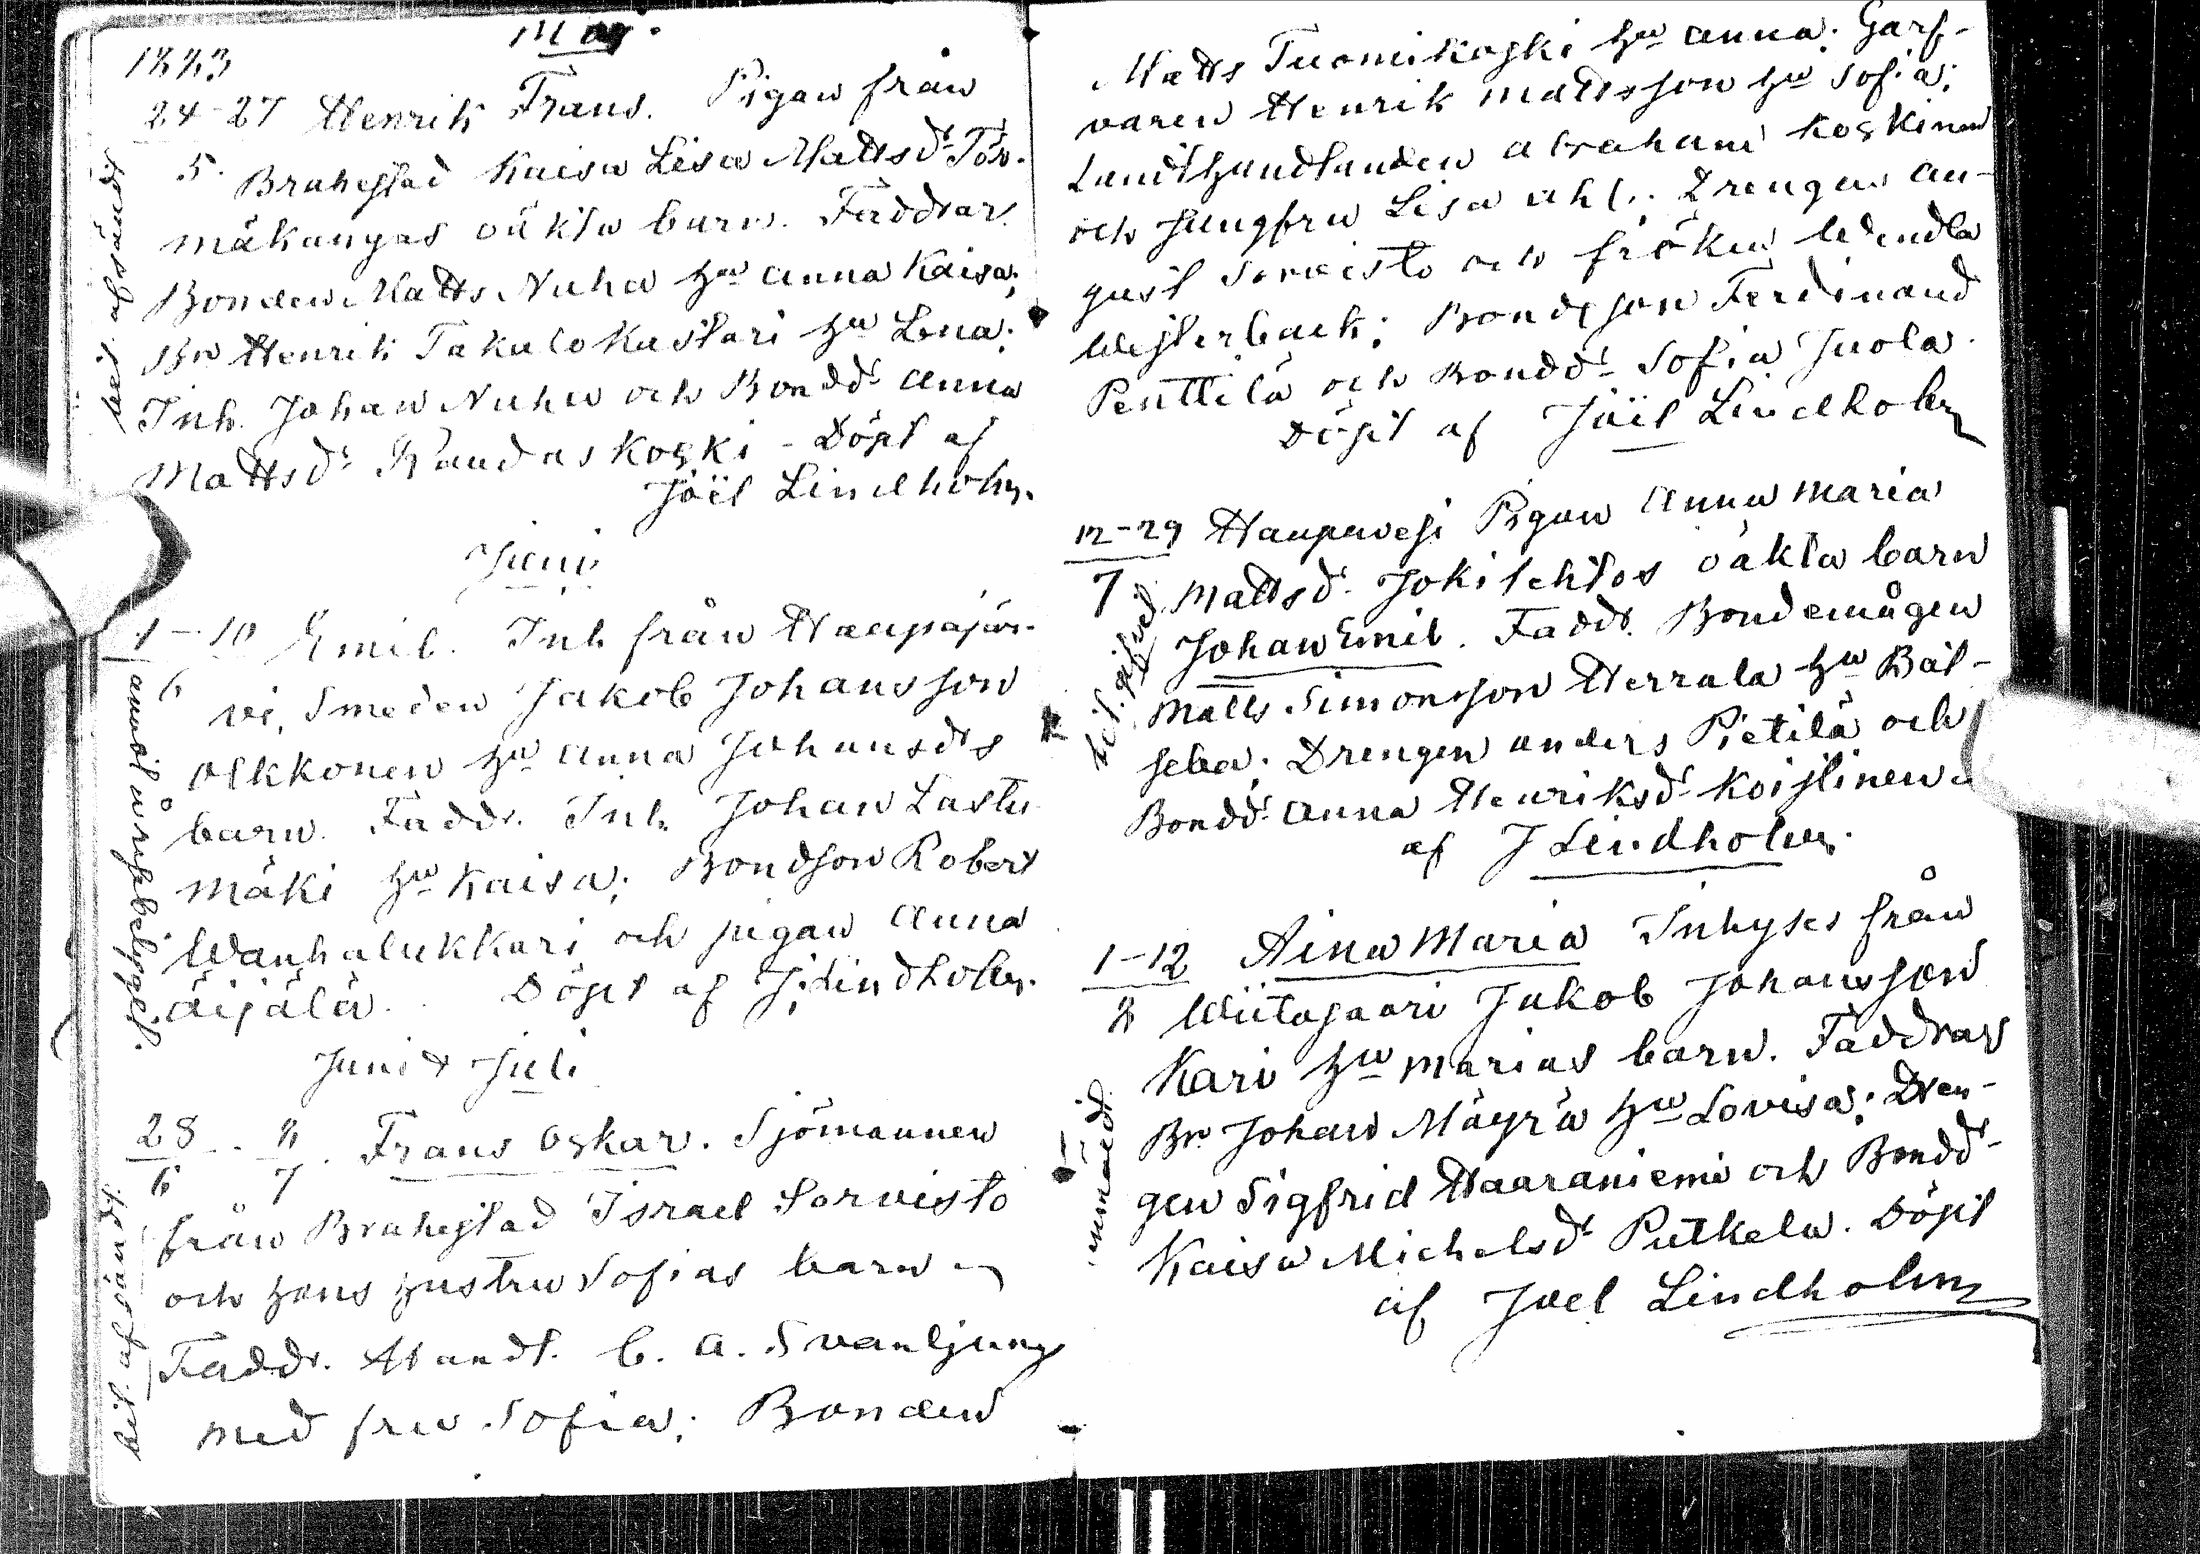 1883 Maj.
24-27 Henrik Frans. Pigan från
5. Brahestad Kaisa Lisa Mattsdr Tör-
mäkangas oäkta barn. Faddrar
Bonden Matts Nuha hu Anna Kaisa;
Bn Henrik Takalo Kastari hu Lena;
Inh. Johan Nuha och Bondd. Anna
Mattsdr Raudaskoski - Döpt af
Joël Lindholm.
bet. afsändt
Juni
1-10 Emil. Inh från Haapajär-
6 vi, Smeden Jakob Johansson
Olkkonen hu Anna Johansds
barn. Faddr. Inh. Johan Lastu
mäki hu Kaisa; Bondson Robert
Wanhalukkari och pigan Anna
Äijälä. Döpt af J. Lindholm.
Juni & Juli
28 - 8 Frans Oskar. Sjömannen
6 7
från Brahestad Israel Sorvisto
och hans hustru Sofias barn
Faddr. Handl. C. A. Svanljung
med fru Sofia; Bonden
bet. afsändt.
Matts Tuomikoski hu Anna; Garf-
varen Henrik Mattsson hu Sofia;
Landthandlanden Abraham Koskinen
och Jungfru Lisa Ahl.; Drengen Au-
gust Sorvisto och fröken Wendla
Westerback; Bondeson Ferdinand
Penttilä och Bondd. Sofia Juola.
Döpt af Joël Lindholm
12-29 Haapavesi Pigan Anna Maria
7 Mattsd. Jokilehtos oäkta barn
Johan Emil. Faddr. Bondemågen
Matts Simonsson Herrala hu Bat-
seba; Drengen Anders Pietilä och
Bondd. Anna Henriksdr Koistinen
af J Lindholm.
1-12 Aina Maria Inhyses från
8 Wiitasaari Jakob Johansson
Kari hu Marias barn. Faddrar
Bn Johan Mäyrä hu Lovisa; Dren-
gen Sigfrid Haaraniemi och Bondd.
Kaisa Michelsdr Putkela. Döpt
af Joel Lindholm